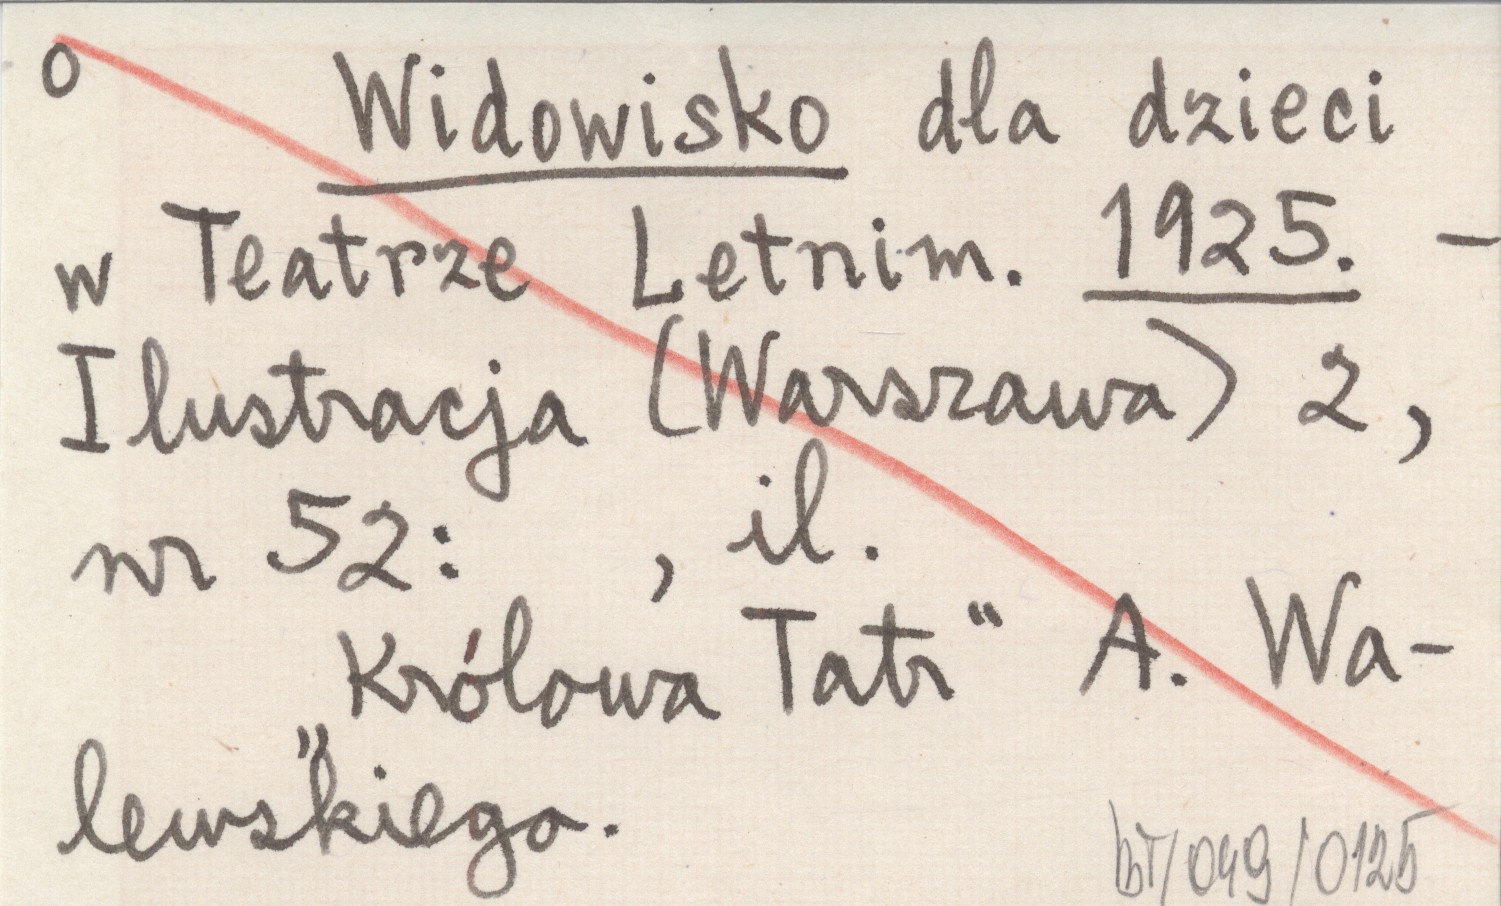 o Widowisko dla dzieci
w Teatrze Letnim. 1925. –
Ilustracja (Warszawa) 2,
nr 52: , il.
„Królowa Tatr“ A. Wa-
lewskiego.
bT/049/0125